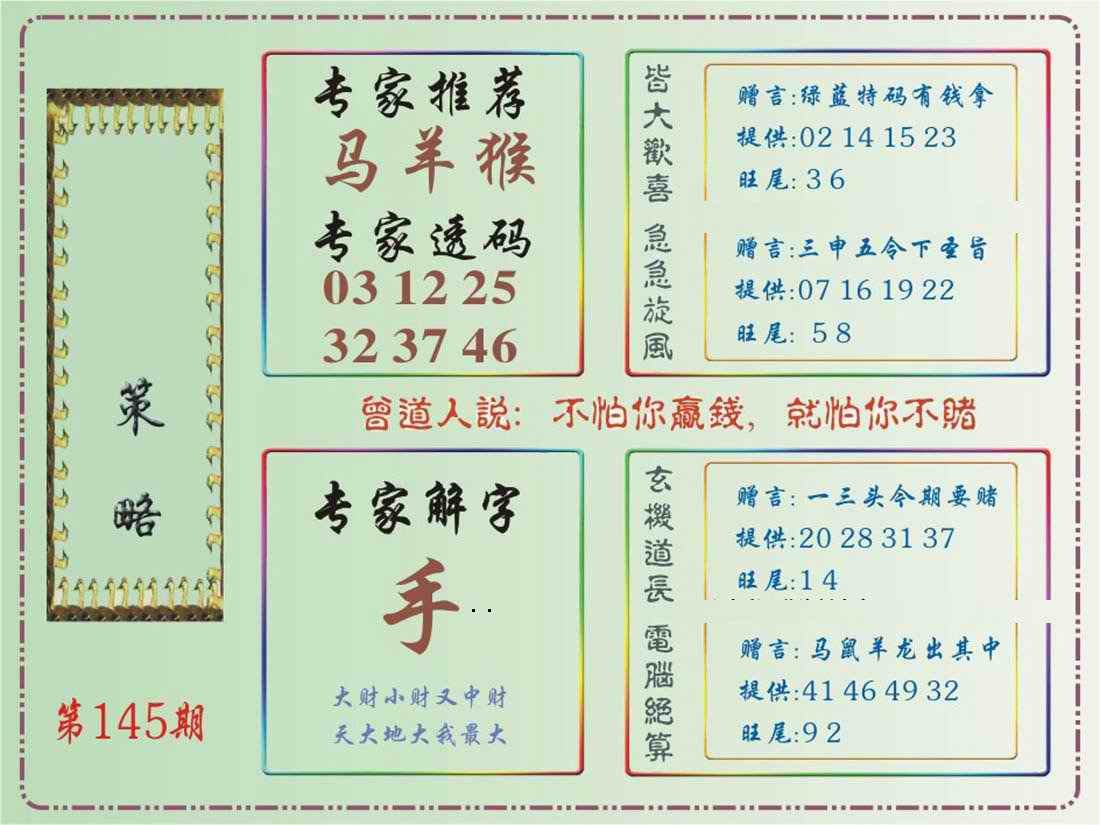 策略
第145期
专家推荐
马羊猴
专家透码
03 12 25
32 37 46
皆大歡喜
赠言:绿蓝特码有钱拿
提供:02 14 15 23
旺尾: 3 6
急急旋風
赠言:三申五令下圣旨
提供:07 16 19 22
旺尾: 5 8
曾道人説: 不怕你贏錢, 就怕你不賭
专家解字
手..
大财小财又中财
天大地大我最大
玄機道長
赠言: 一三头今期要赌
提供:20 28 31 37
旺尾:1 4
電腦絕算
赠言: 马鼠羊龙出其中
提供:41 46 49 32
旺尾:9 2